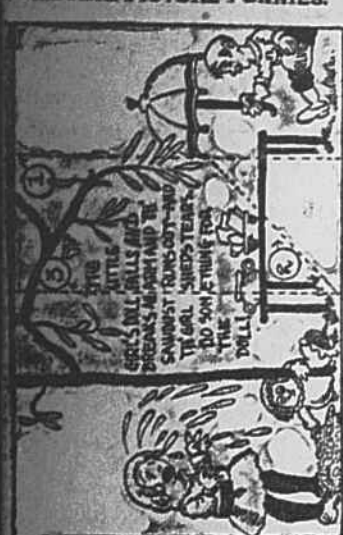 THE
LITTLE
GIRL'S DOLL FALLS AND
BREAKS AN ARM AND THE
SAWDUST RUNS OUT—AND
THE GIRL SHEDS TEARS.
DO SOMETHING FOR
THE
DOLL
3
2